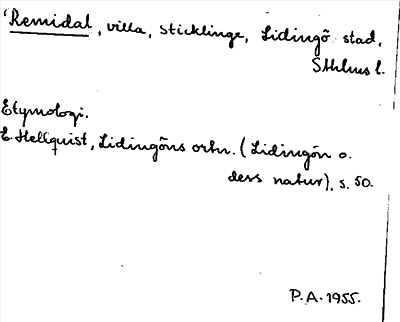 Remidal, villa, Sticklinge, Lidingö stad,
Sthlms l.
Etymologi.
E Hellquist, Lidingöns ortn. (Lidingön o.
dess natur), s. 50.
P.A. 1955.